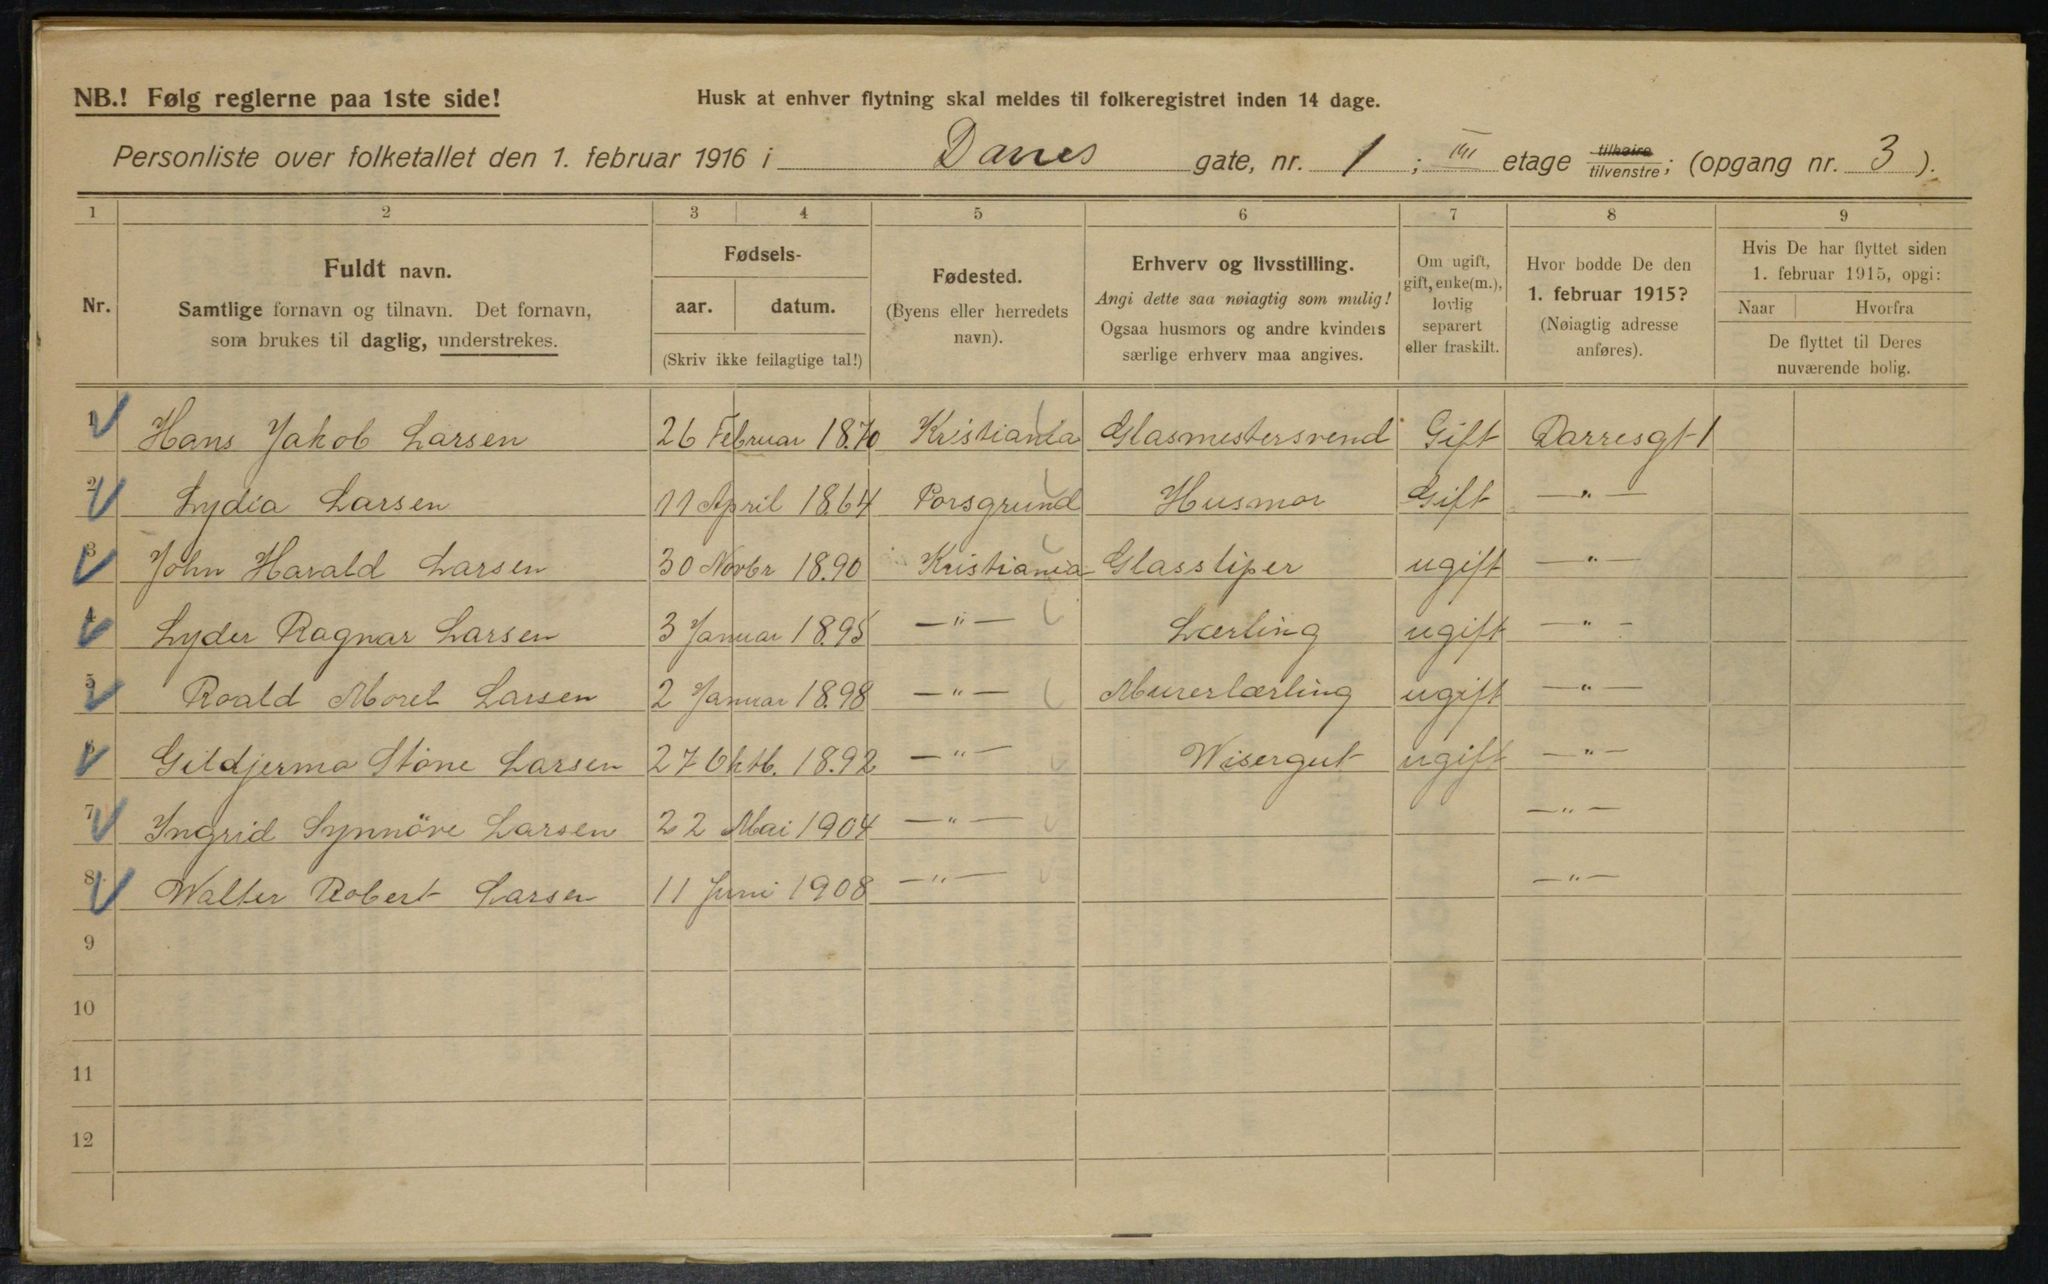 NB.! Følg reglerne paa 1ste side! Husk at enhver flytning skal meldes til folkeregistret inden 14 dage.
Personliste over folketallet den 1. februar 1916 i Darres gate, nr. 1; III etage tilhøire/tilvenstre; (opgang nr. 3).
1 2 3 4 5 6 7 8 9
Nr.
Fuldt navn.
Samtlige fornavn og tilnavn. Det fornavn,
som brukes til daglig, understrekes.
Fødsels-
aar. datum.
(Skriv ikke feilagtige tal!)
Fødested.
(Byens eller herredets
navn).
Erhverv og livsstilling.
Angi dette saa nøiagtig som mulig!
Ogsaa husmors og andre kvinders
særlige erhverv maa angives.
Om ugift,
gift, enke(m.),
lovlig
separert
eller fraskilt.
Hvor bodde De den
1. februar 1915?
(Nøiagtig adresse
anføres).
Hvis De har flyttet siden
1. februar 1915, opgi:
Naar Hvorfra
De flyttet til Deres
nuværende bolig.
1 Hans Jakob Larsen 26 Februar 1870 Kristiania Glasmestersvend Gift Darresgt 1
2 Lydia Larsen 11 April 1864 Porsgrund Husmor Gift —"—
3 John Harald Larsen 30 Novbr 1890 Kristiania Glassliper ugift —"—
4 Lyder Ragnar Larsen 3 Januar 1895 —"— Lærling ugift —"—
5 Roald Morel Larsen 2 Januar 1898 —"— Murerlærling ugift —"—
6 Larsen 27 Oktb. 1892 —"— Wisergut ugift —"—
7 Ingrid Synnöve Larsen 22 Mai 1904 —"— —"—
8 Walter Robert Larsen 11 Juni 1908 —"— —"—
9
10
11
12